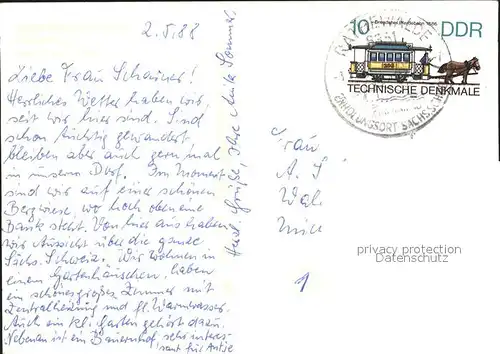 2.5.88
Liebe Frau Schauer!
Herrliches Wetter haben wir,
seit wir hier sind. Sind
schon tüchtig gewandert,
bleiben aber auch gern mal
in unserm Dorf. Im Moment
sind wir auf einer schönen
Bergwiese, wo hoch oben eine
Bank steht. Von hier aus haben
wir Aussicht über die ganze
Sächs. Schweiz. Wir wohnen in
einem Gartenhäuschen, haben
ein schönes großes Zimmer mit
Zentralheizung und fl. Warmwasser.
Auch ein kl. Garten gehört dazu.
Nebenan ist ein Bauernhof, sehr interes-
sant für Antje
Herzl. Grüße, Ihre Anita Sommer
10
DDR
TECHNISCHE DENKMALE
ERHOLUNGSORT SÄCHS. SCHW
Frau
A. S
Wal
1
privacy protection
Datenschutz